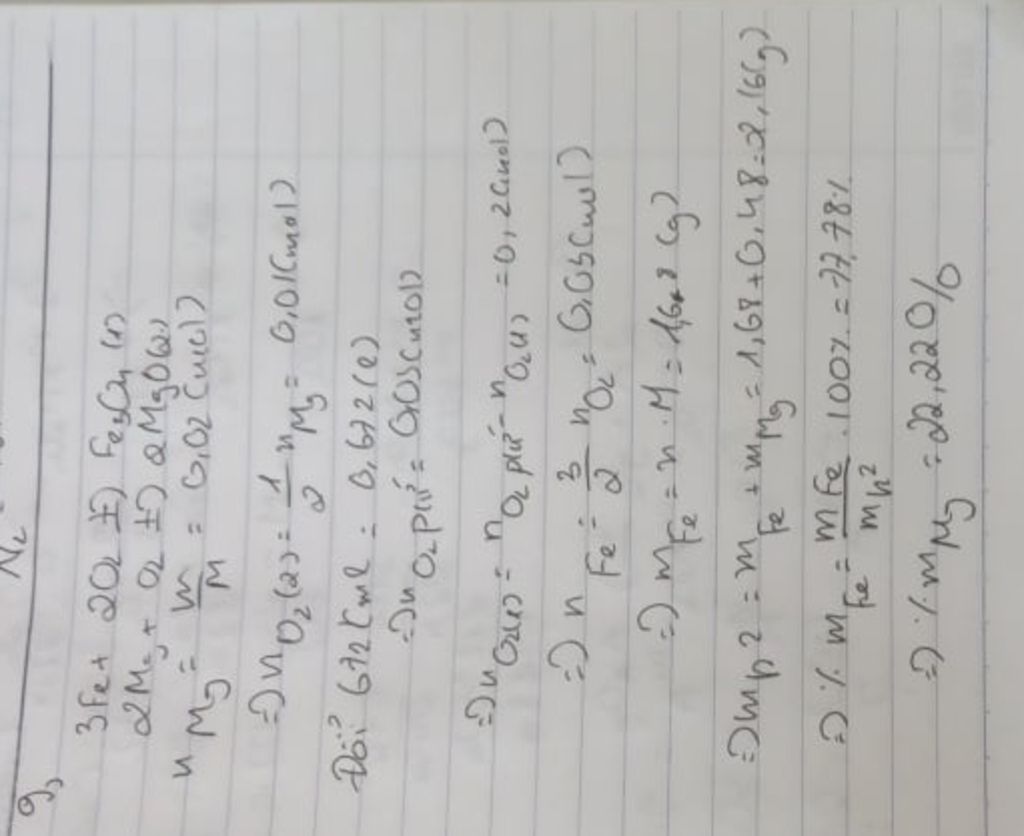 9,
3Fe + 2O2 t°→ Fe3O4 (1)
2Mg + O2 t°→ 2MgO (2)
nMg = m/M = 0,02 (mol)
=> nO2(2) = 1/2 nMg = 0,01 (mol)
Đổi 672 (ml = 0,672 (l)
=> nO2 pứ = 0,03 (mol)
=> nO2(1) = nO2 pứ - nO2(2) = 0,2 (mol)
=> nFe = 3/2 nO2 = 0,03 (mol)
=> mFe = n . M = 1,68 (g)
=> mh2 = mFe + mMg = 1,68 + 0,48 = 2,16 (g)
=> % mFe = mFe/mh2 . 100% = 77,78%
=> % mMg = 22,22%